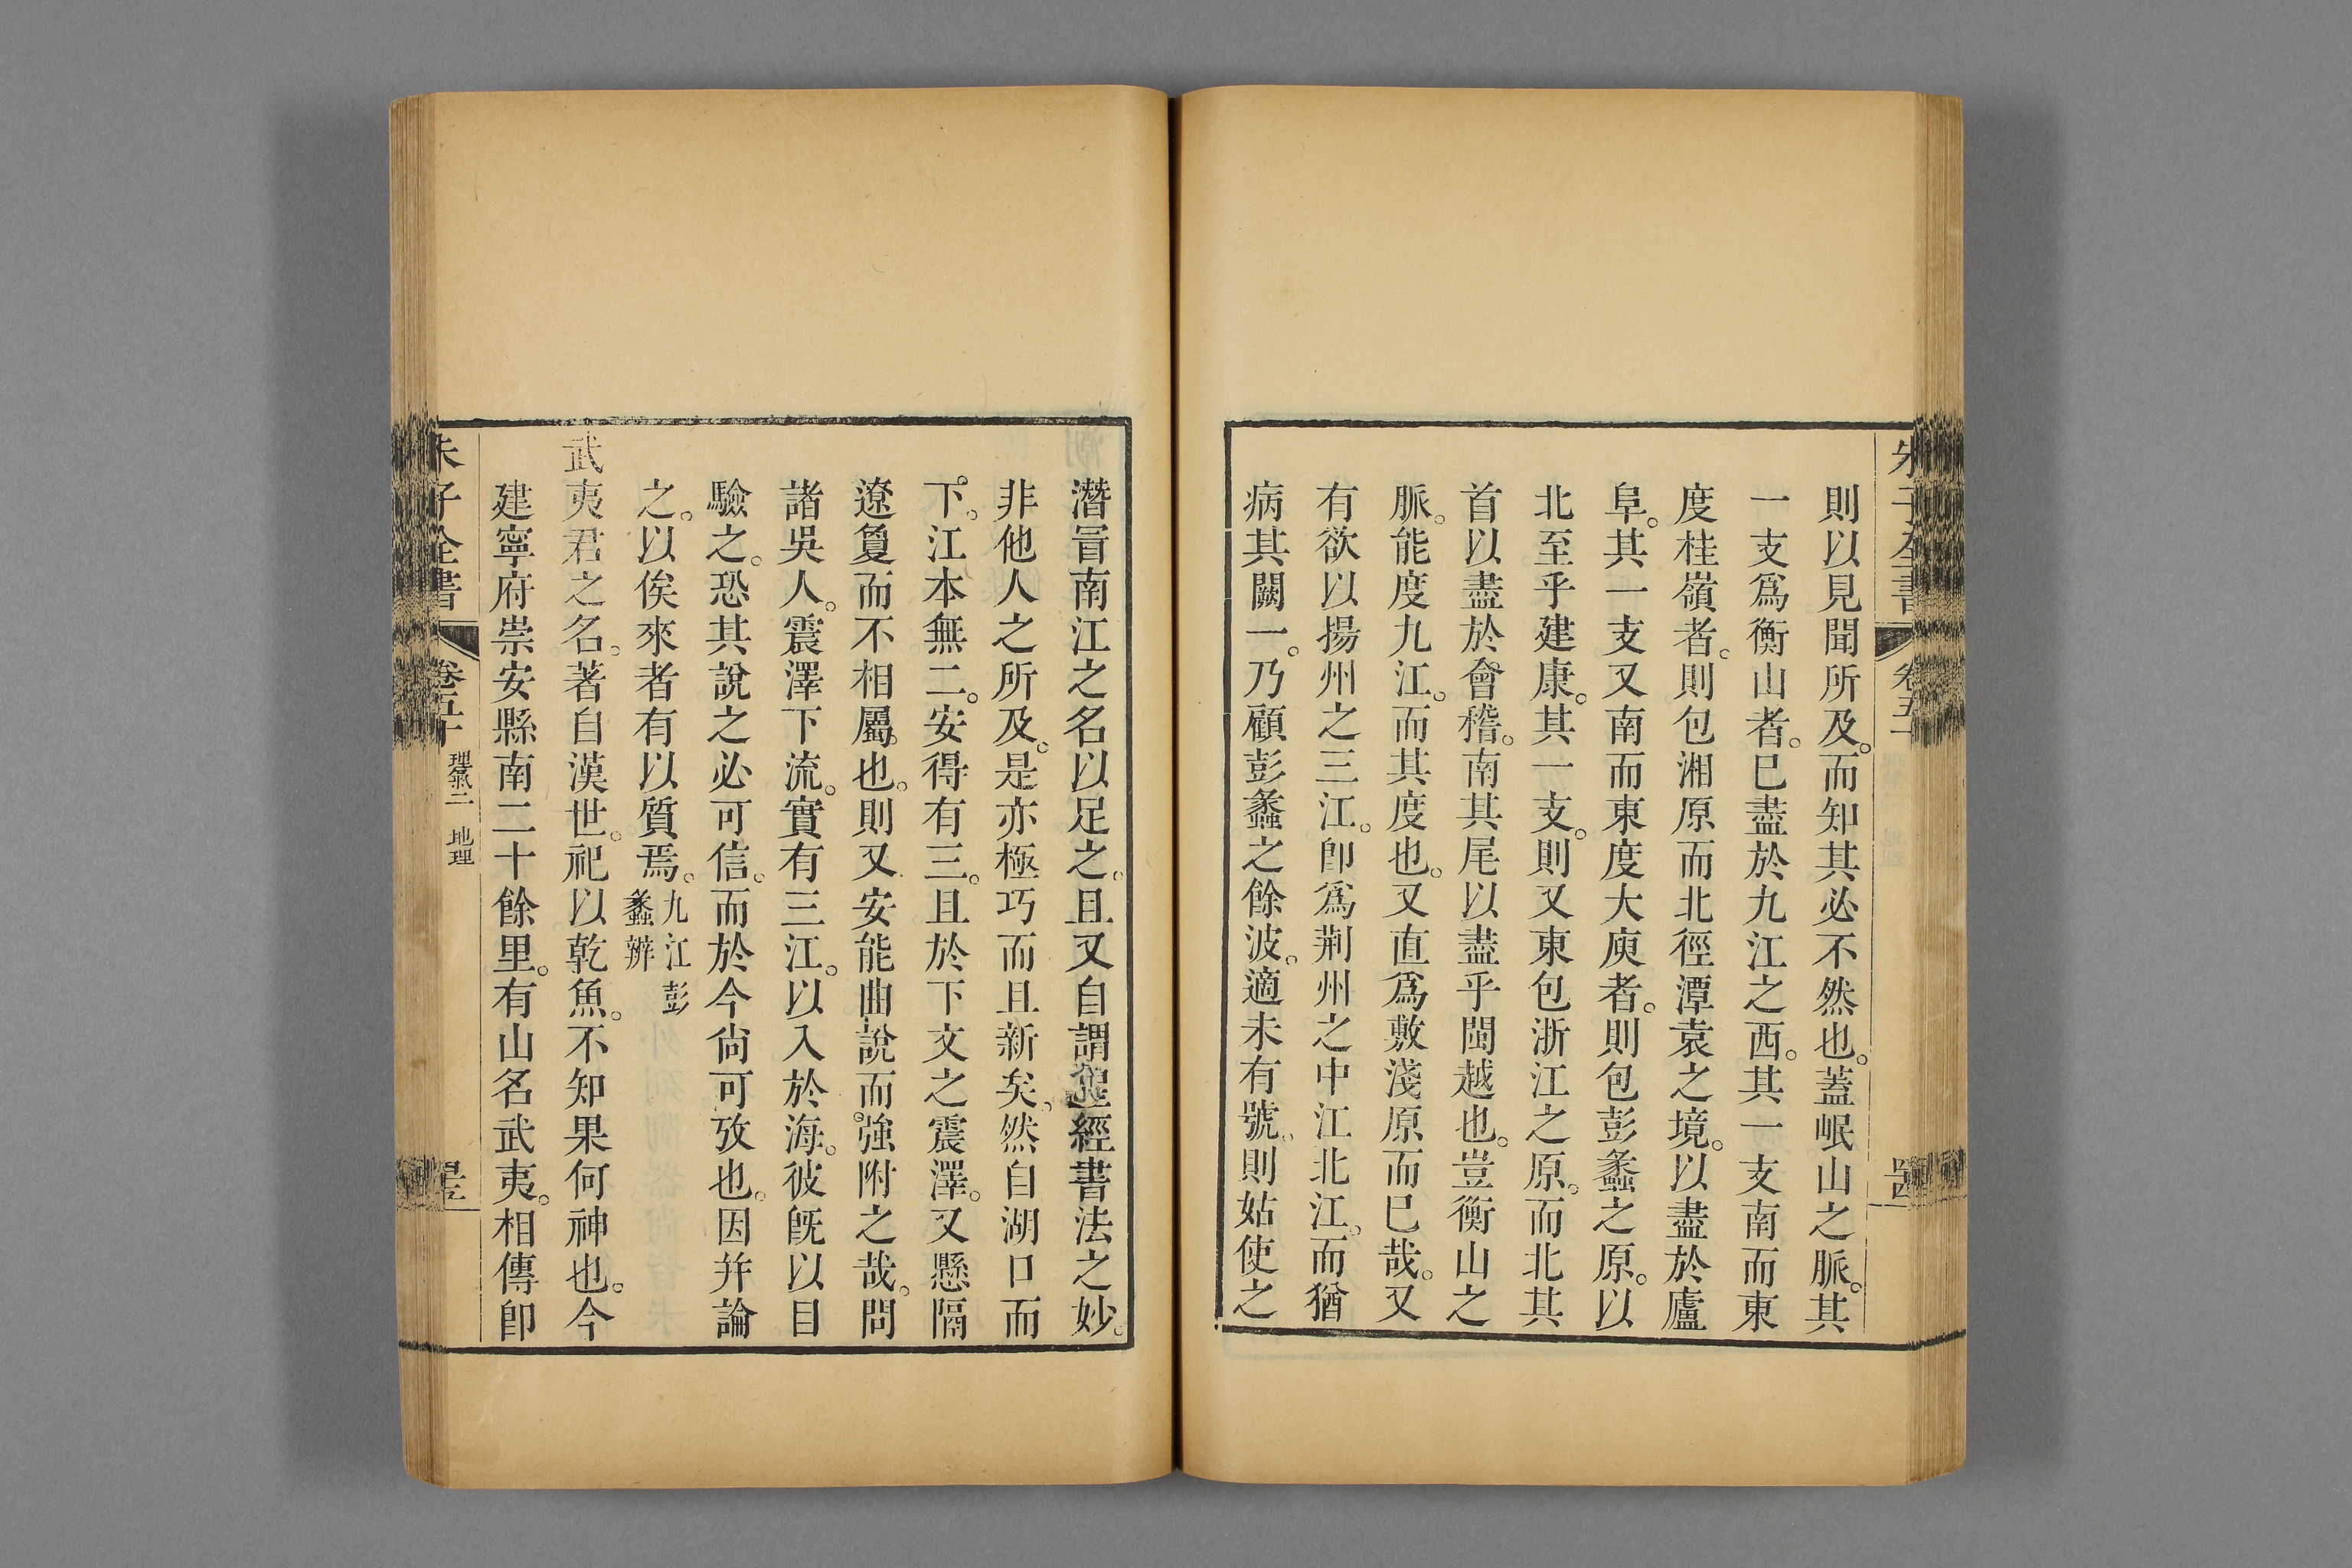 則以見聞所及。而知其必不然也。蓋岷山之脈。其
一支爲衡山者。已盡於九江之西。其一支南而東
度桂嶺者。則包湘原而北徑潭袁之境。以盡於廬
阜。其一支又南而東度大庾者。則包彭蠡之原。以
北至乎建康。其一支。則又東包浙江之原。而北其
首以盡於會稽。南其尾以盡乎閩越也。豈衡山之
脈。能度九江。而其度也。又直爲敷淺原而已哉。又
有欲以揚州之三江。卽爲荆州之中江北江。而猶
病其闕一。乃顧彭蠡之餘波。適未有號。則姑使之
潛冐南江之名以足之。且又自謂聖經書法之妙。
非他人之所及。是亦極巧而且新矣。然自湖口而
下。江本無二。安得有三。且於下文之震澤。又懸隔
遼敻而不相屬也。則又安能曲說而強附之哉。問
諸吳人。震澤下流。實有三江。以入於海。彼旣以目
驗之。恐其說之必可信。而於今尙可攷也。因并論
之。以俟來者有以質焉。九江彭
蠡辨
武夷君之名。著自漢世。祀以乾魚。不知果何神也。今
建寧府崇安縣南二十餘里。有山名武夷。相傳卽
朱子全書 卷五十 理氣二 地理